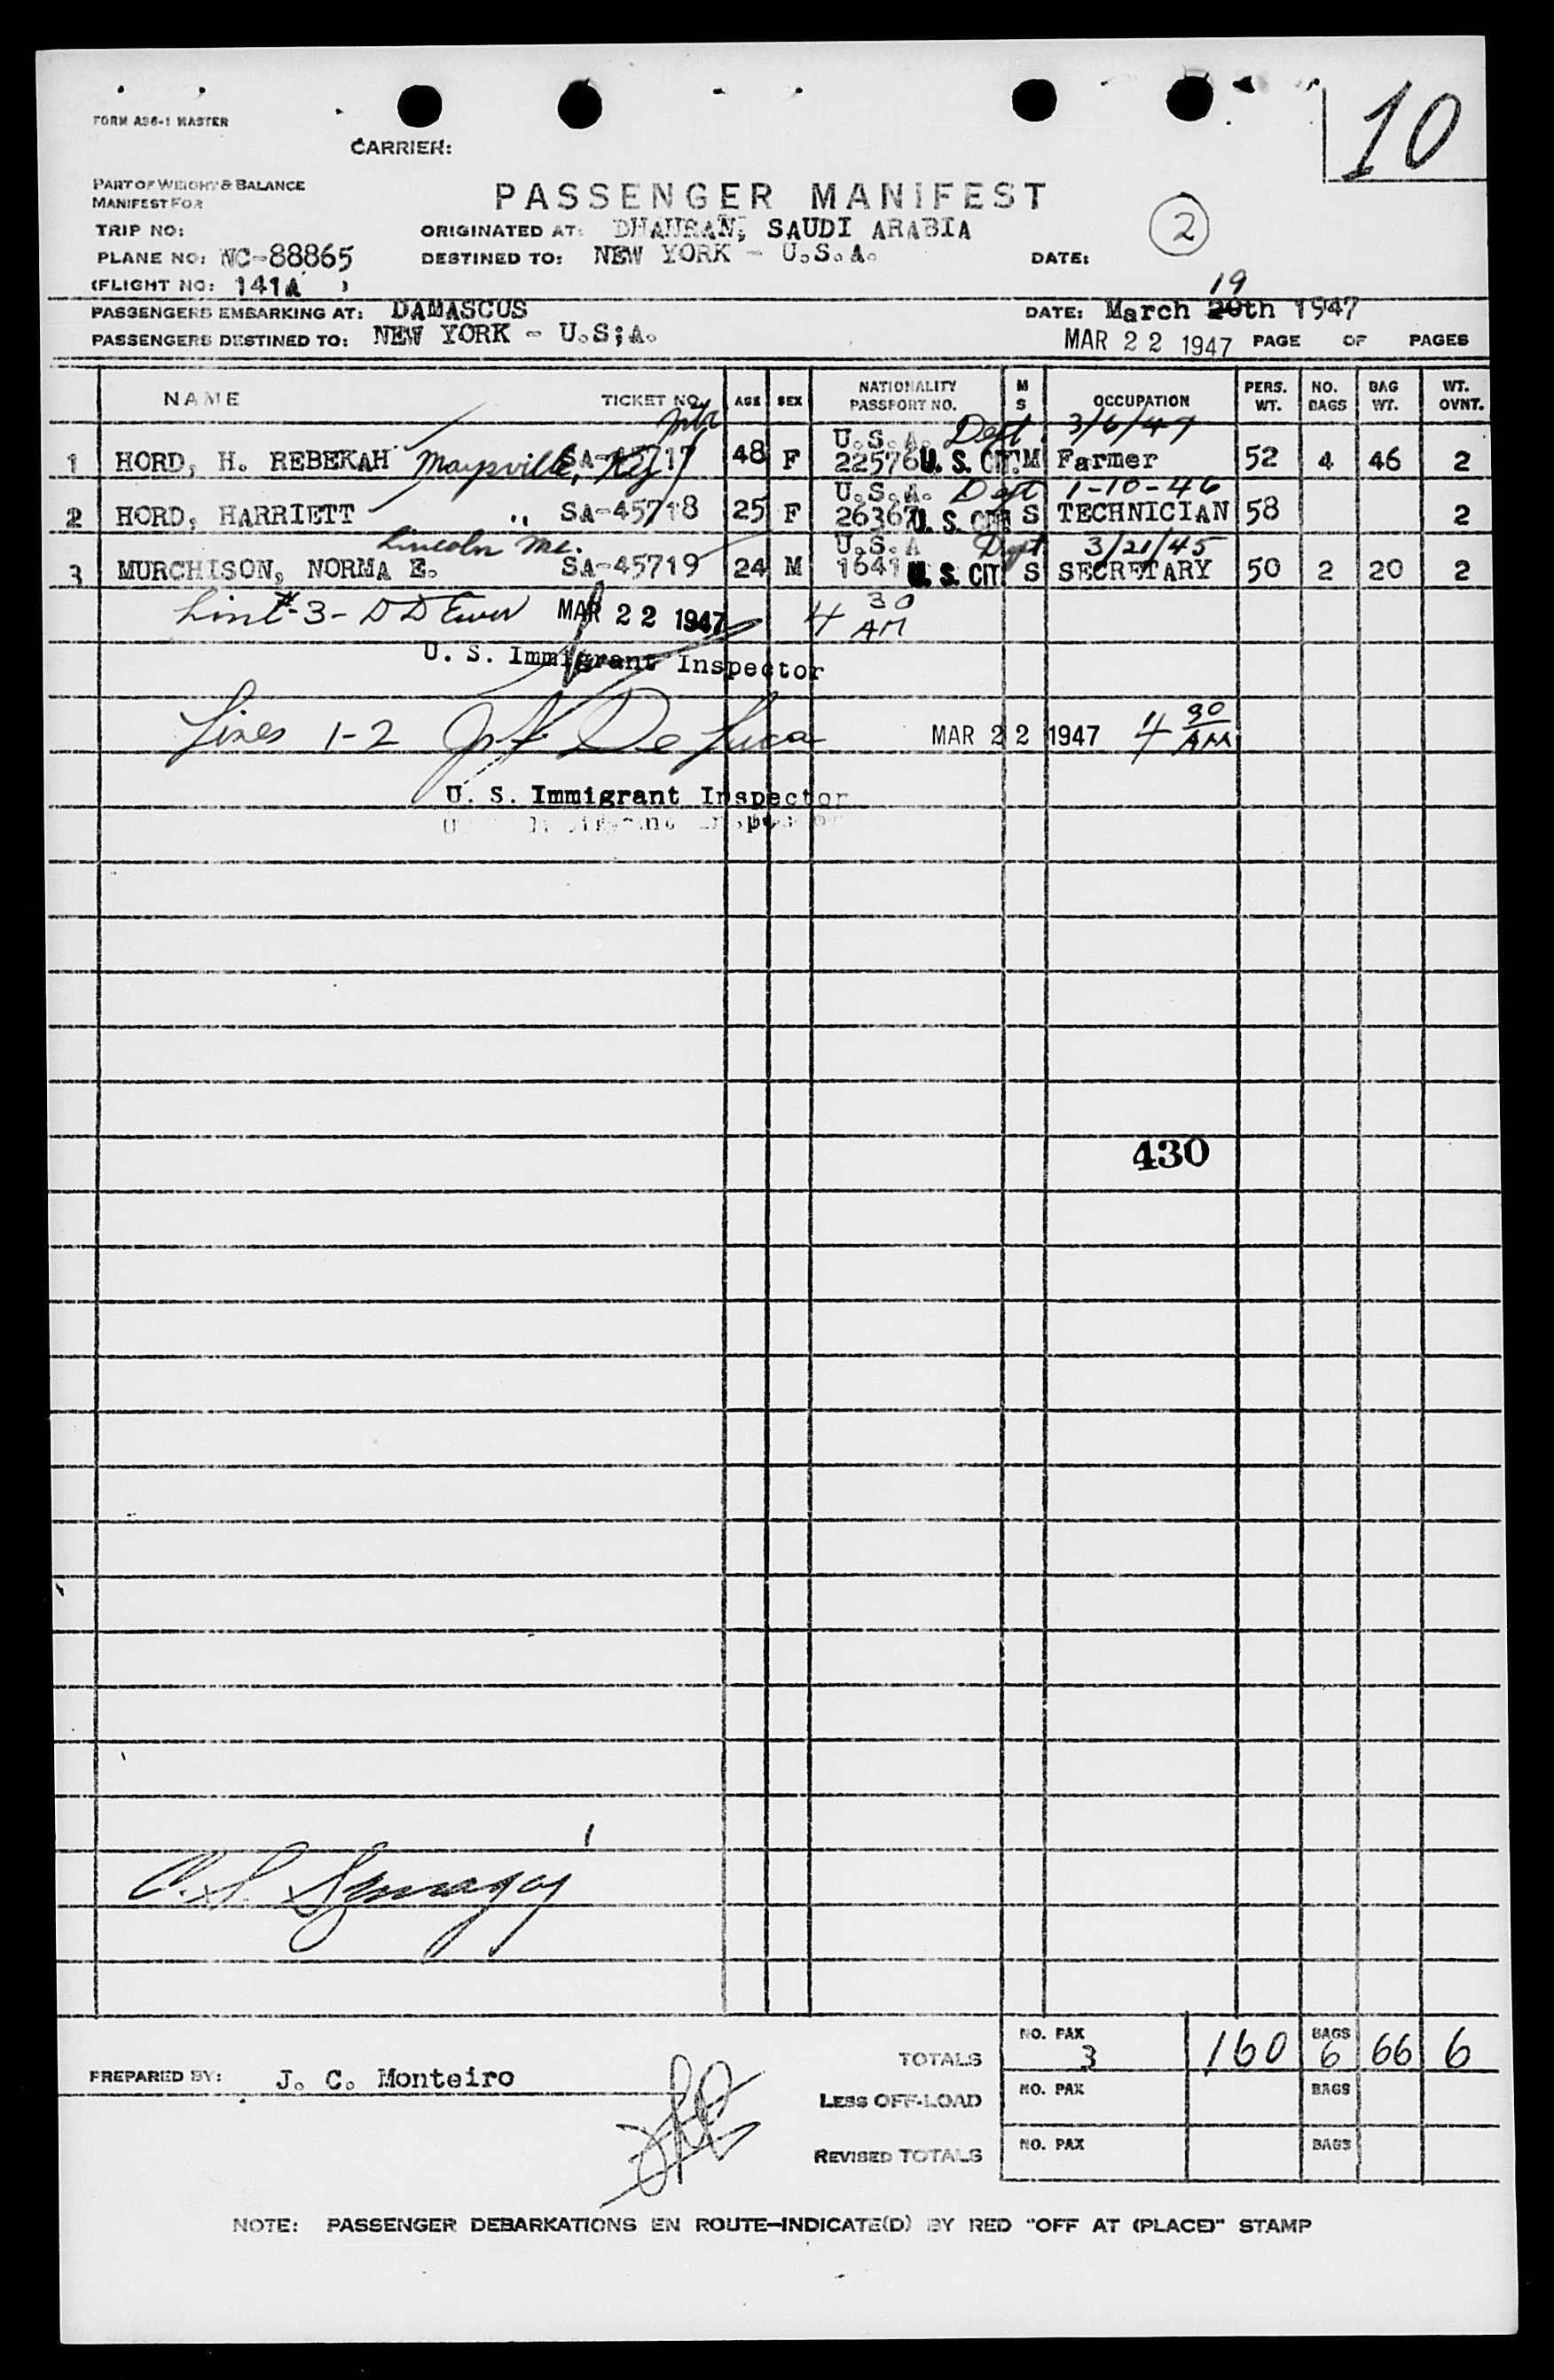 10
FORM A36-1 MASTER
CARRIER:
PART OF WEIGHT & BALANCE
MANIFEST FOR
PASSENGER MANIFEST
TRIP NO:
ORIGINATED AT: DHAHRAN, SAUDI ARABIA
2
PLANE NO: NC-88865
DESTINED TO: NEW YORK - U.S.A.
DATE:
(FLIGHT NO: 141A )
19
PASSENGERS EMBARKING AT: DAMASCUS
DATE: March 20th 1947
PASSENGERS DESTINED TO: NEW YORK - U.S;A.
MAR 22 1947 PAGE OF PAGES
NAME TICKET NO. AGE SEX NATIONALITY PASSPORT NO. M S OCCUPATION PERS. WT. NO. BAGS BAG WT. WT. OVNT.
U.S.A. Dept 3/6/47
1 HORD, H. REBEKAH Maysville, Ky SA-45717 48 F 22576 U. S. CIT. M Farmer 52 4 46 2
U.S.A. Dept 1-10-46
2 HORD, HARRIETT " SA-45718 25 F 26367 U. S. CIT S TECHNICIAN 58 2
Lincoln Me. U.S.A Dept 3/21/45
3 MURCHISON, NORMA E. SA-45719 24 M 1641 U. S. CIT S SECRETARY 50 2 20 2
Line #-3- MAR 22 1947 4 30 AM
U. S. Immigrant Inspector
Lines 1-2 De Luca MAR 22 1947 4 30 AM
U. S. Immigrant Inspector
430
TOTALS NO. PAX 3 160 BAGS 6 66 6
PREPARED BY: J. C. Monteiro
LESS OFF-LOAD NO. PAX BAGS
REVISED TOTALS NO. PAX BAGS
NOTE: PASSENGER DEBARKATIONS EN ROUTE—INDICATE(D) BY RED "OFF AT (PLACE)" STAMP